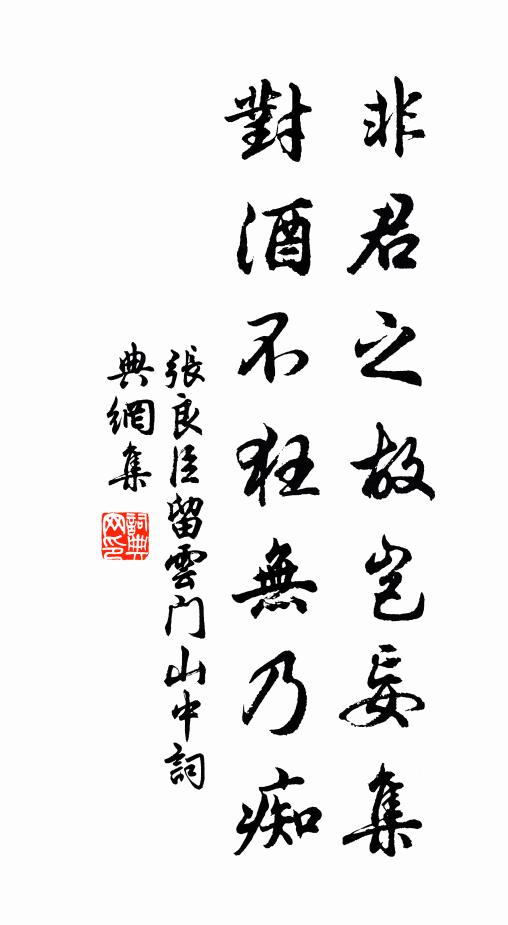 非君之故岂妄集
對酒不狂無乃痴
張良臣留雲门山中詞
典網集
詞典
网印